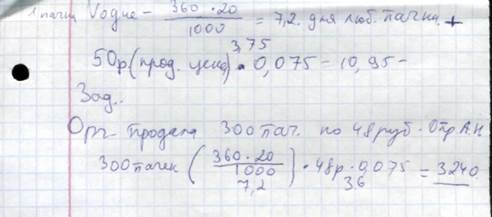 1 пачки Vogue - 360 · 20 / 1000 = 7,2. для люб. пачки +
3,75
50р (прод. цена) · 0,075 = 10,95 -
Зад..
Орг- продала 300 пач. по 48 руб. Опр А.Н
300 пачек (360 · 20 / 1000) · 48р · 0,075 = 3240
7,2 36